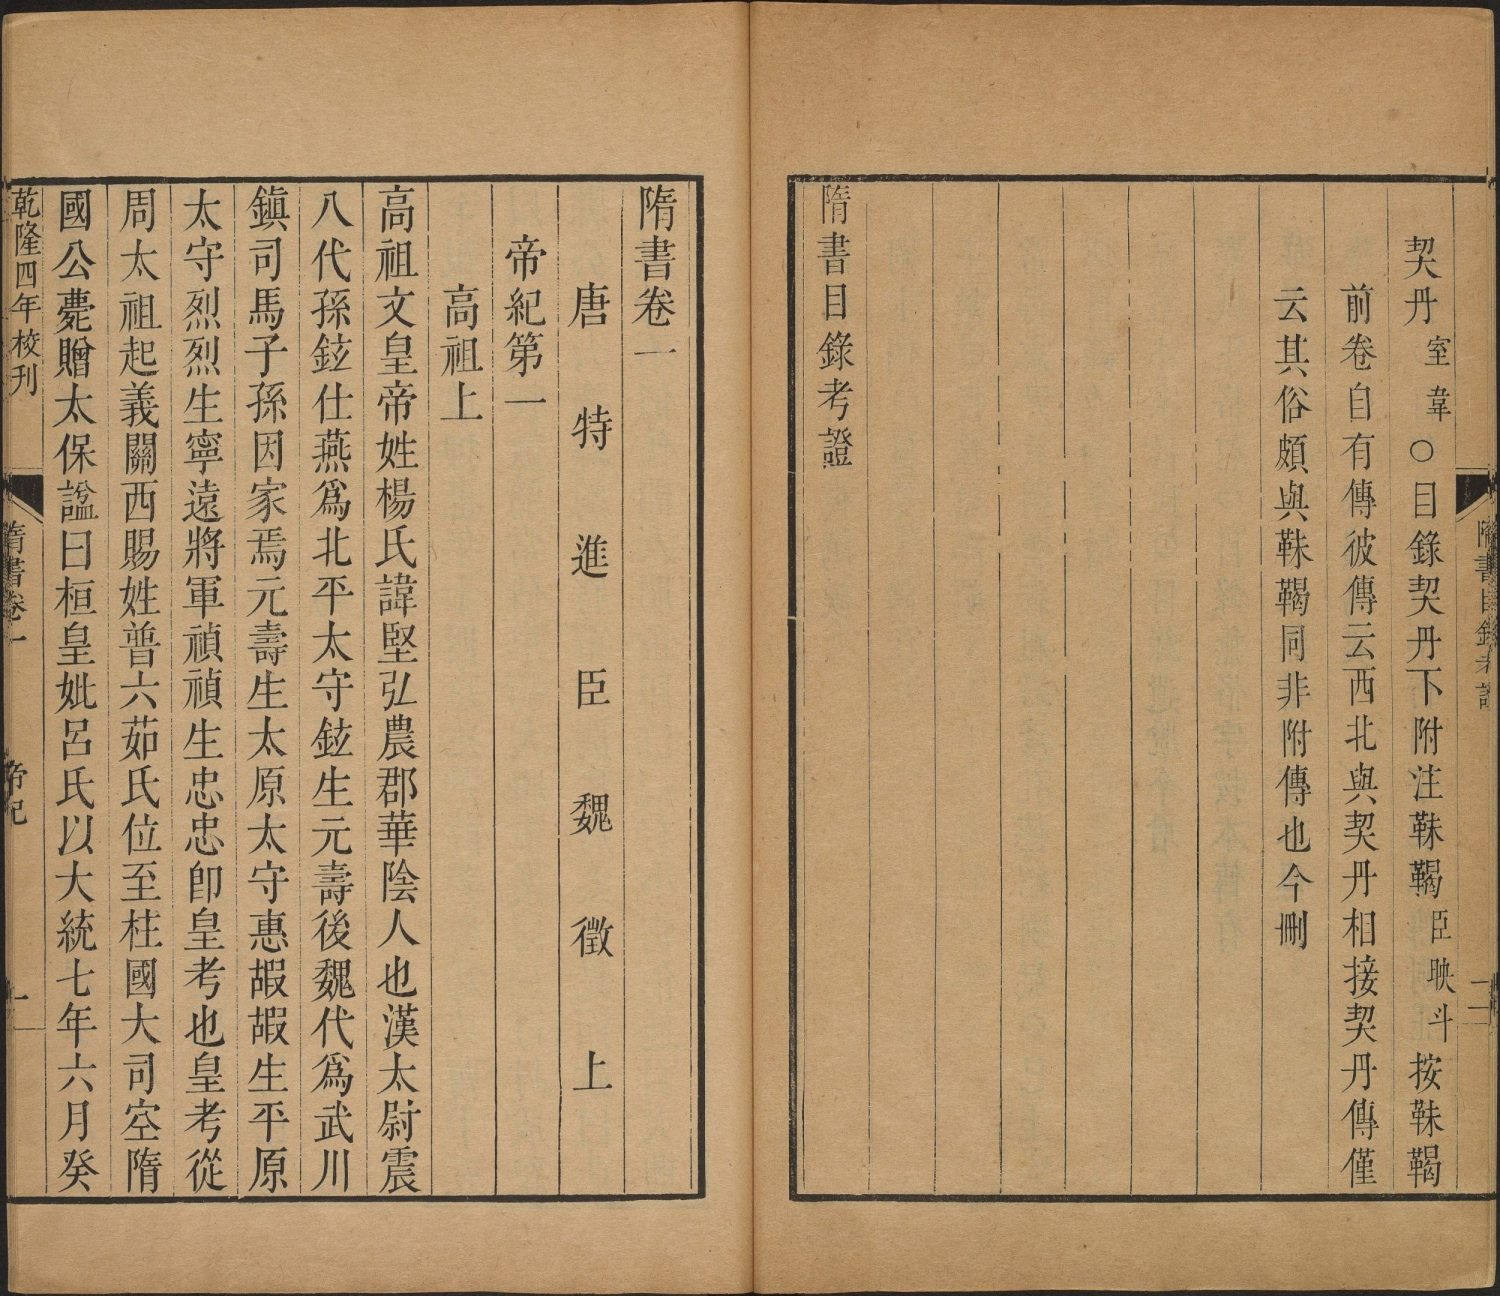 契丹室韋○目錄契丹下附注靺鞨臣映斗按靺鞨
前卷自有傳彼傳云西北與契丹相接契丹傳僅
云其俗頗與靺鞨同非附傳也今刪
隋書目錄考證
隋書目錄考證
二
隋書卷一
唐特進臣魏徵上
帝紀第一
高祖上
高祖文皇帝姓楊氏諱堅弘農郡華陰人也漢太尉震
八代孫鉉仕燕爲北平太守鉉生元壽後魏代爲武川
鎮司馬子孫因家焉元壽生太原太守惠嘏嘏生平原
太守烈烈生寧遠將軍禎禎生忠忠卽皇考也皇考從
周太祖起義關西賜姓普六茹氏位至柱國大司空隋
國公薨贈太保諡曰桓皇妣呂氏以大統七年六月癸
乾隆四年校刊
隋書卷一
帝紀
一